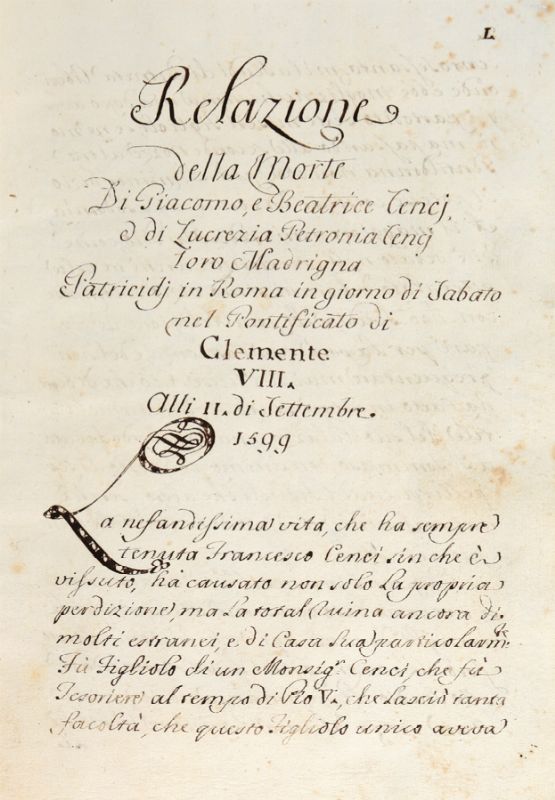 L.
Relazione
della Morte
Di Giacomo, e Beatrice Cencj,
e di Lucrezia Petronia Cencj
loro Madrigna
Patricidj in Roma in giorno di Sabato
nel Pontificato di
Clemente
VIII.
Alli 11. di Settembre.
1599
La nefandissima vita, che ha sempre
tenuta Francesco Cenci sin che è
vissuto, ha causato non solo la propria
perdizione, ma la total Ruina ancora di
molti estranei, e di Casa Sua particolarmte.
Fù Figliolo di un Monsigr. Cenci, che fù
Tesoriere al tempo di Pio V., che lasciò tanta
facoltà, che questo Figliolo unico aveva